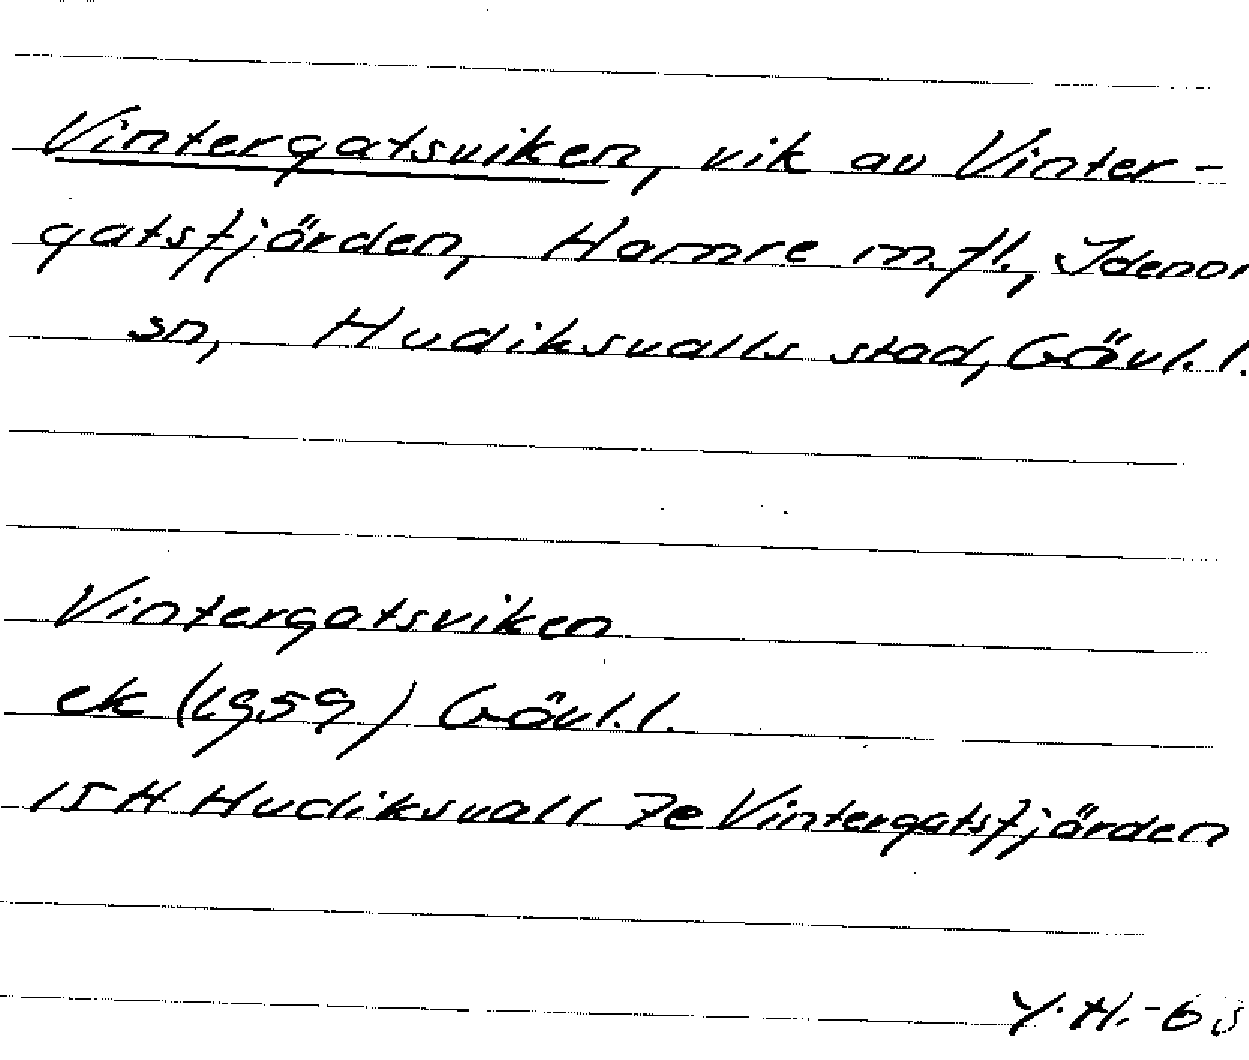 Vintergatsviken, vik av Vinter-
gatsfjärden, Hamre m.fl., Idenor
sn, Hudiksvalls stad, Gävl. l.
Vintergatsviken
ek (1959) Gävl. l.
15H Hudiksvall 7e Vintergatsfjärden
Y.H.-6